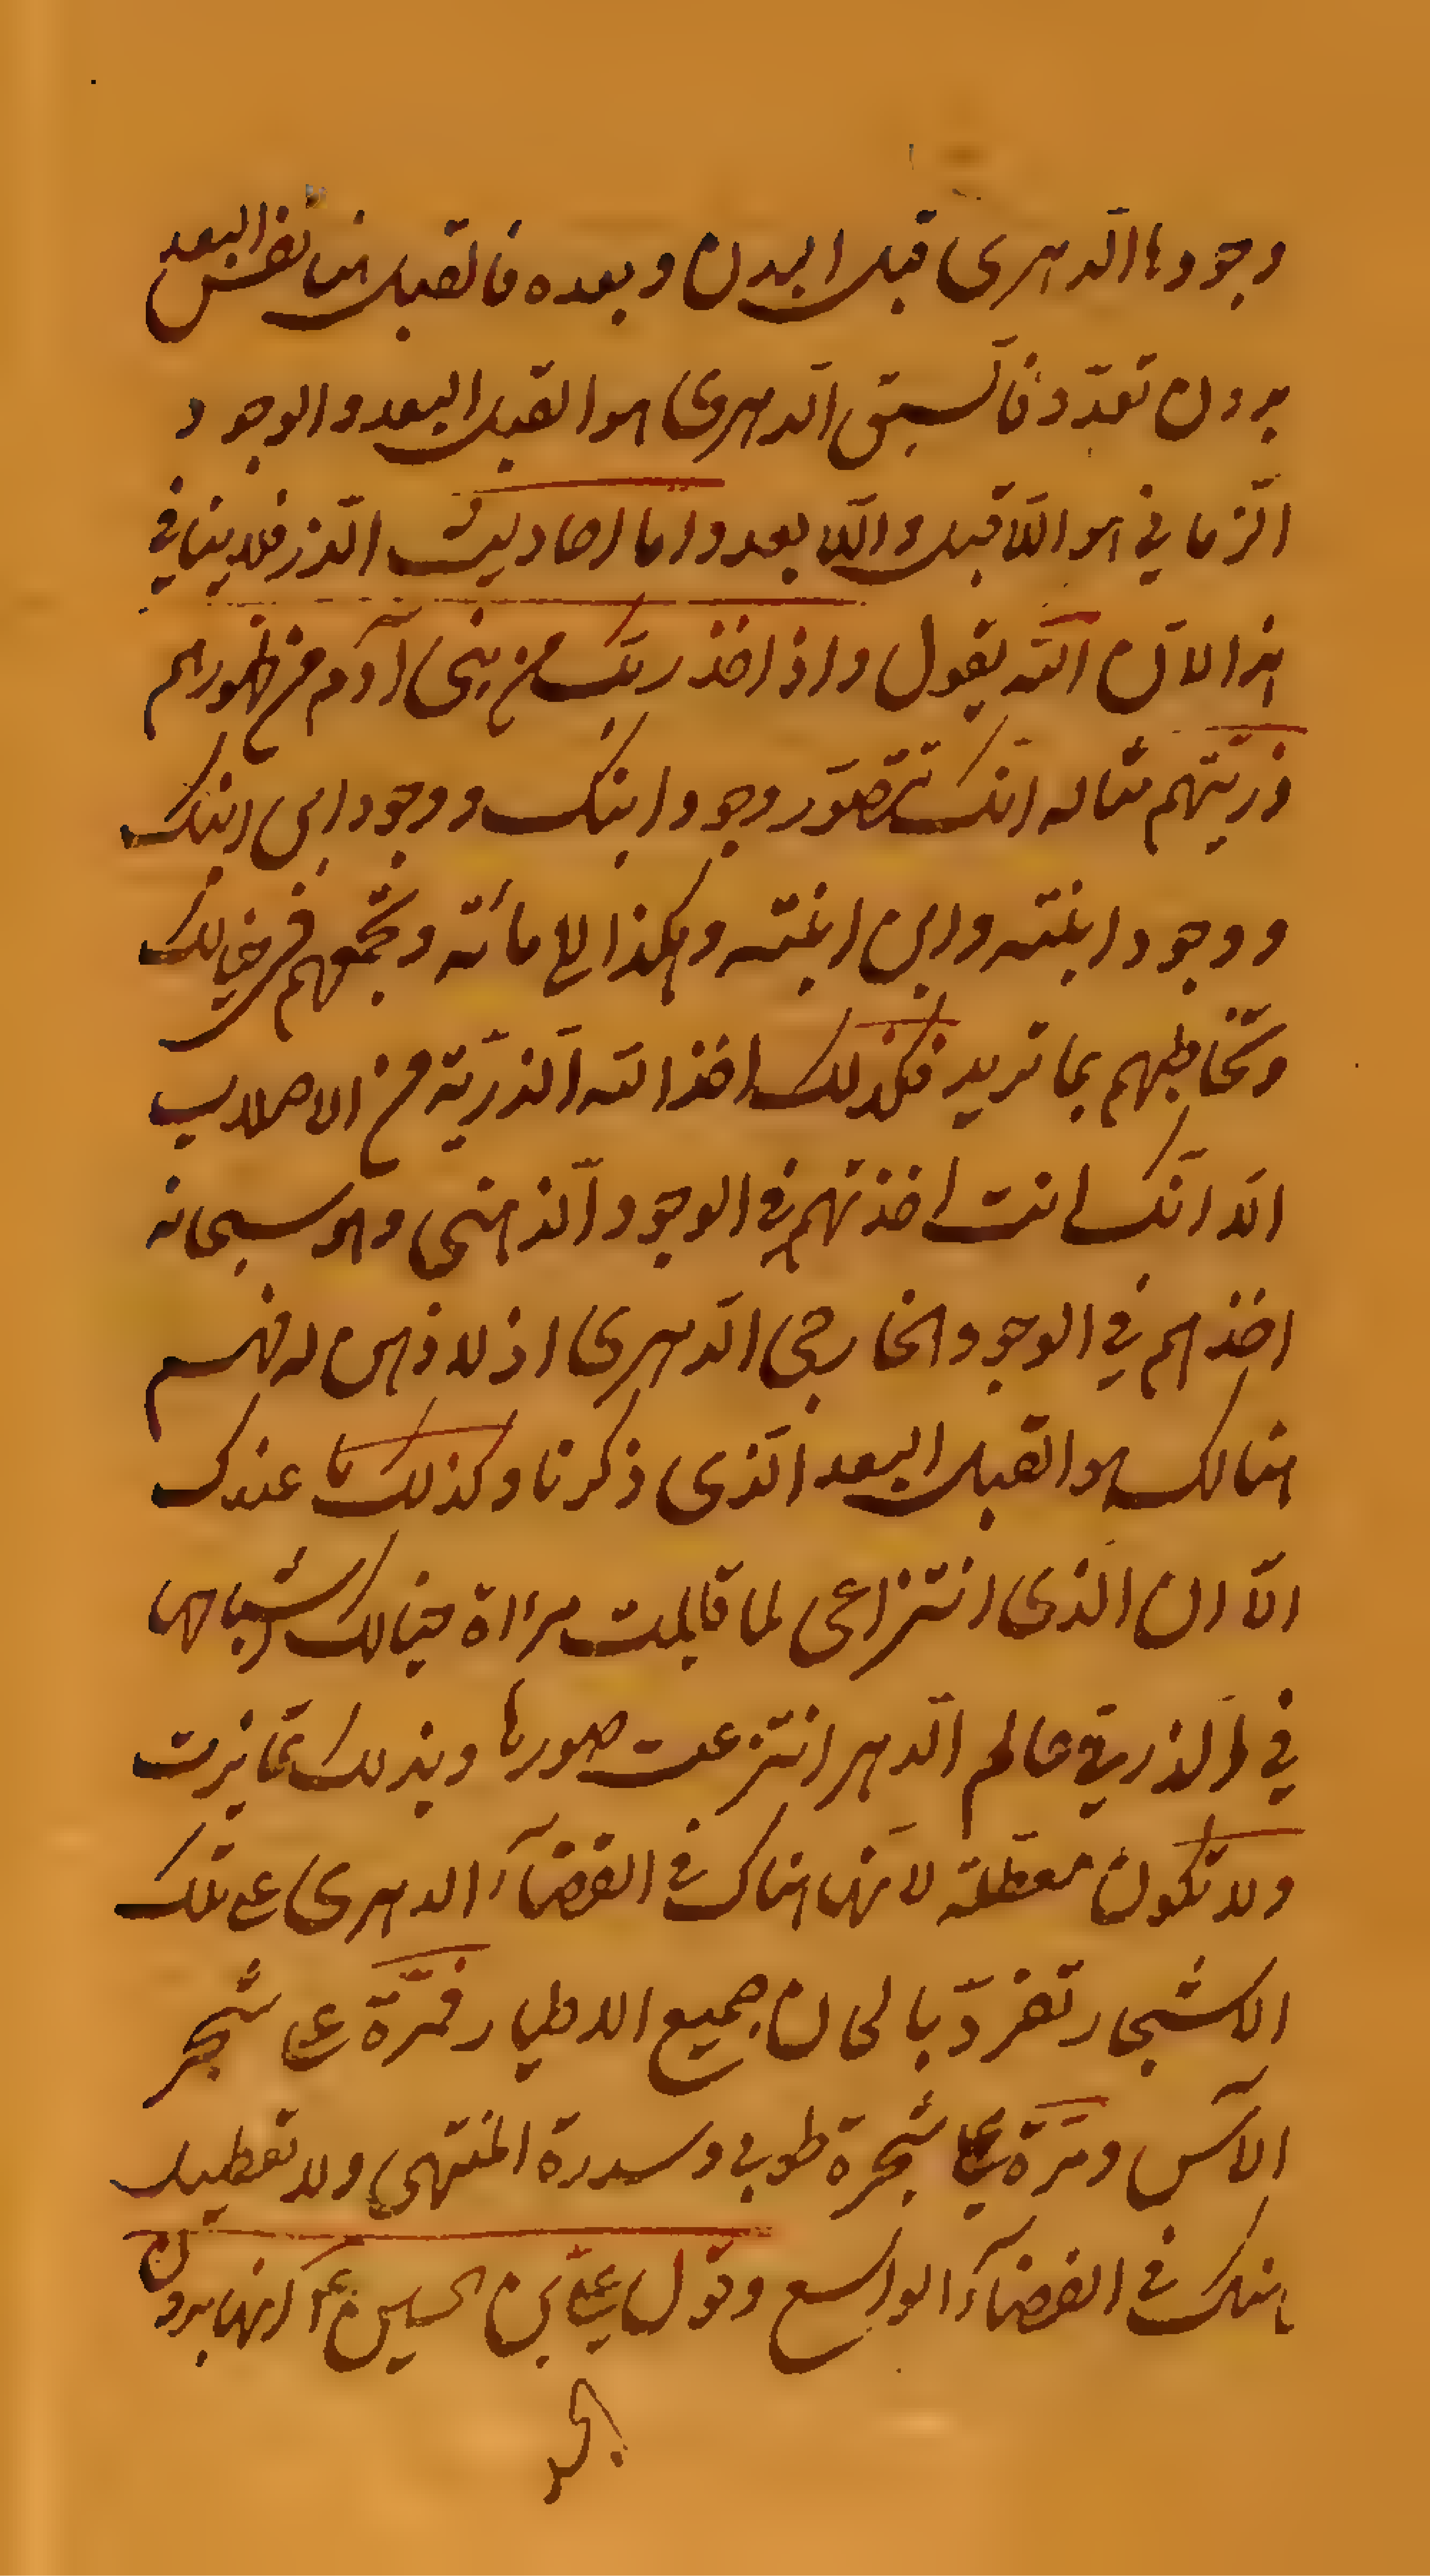 وجودها الدّهرى قبل البدن و بعده فالقبل هنا نفس البعد
بدون تعدّد فالسّبق الدّهرى هو القبل البعد و الوجود
الزّمانى هو اللّا قبل و اللّا بعد و امّا احاديث الذّر فلا ينافى
هذا لانّ اللّه يقول و اذ اخذ ربّك من بنى آدم من ظهورهم
ذرّيّتهم مثاله انّك تتصّور وجود ابنك و وجود ابن ابنك
و وجود ابنته و ابن ابنته و هكذا الى مائه و تجمعهم فى خيالك
و تخاطبهم بما تريد فكذلك اخذ اللّه الذّرّيّة من الاصلاب
الّا انّك انت اخذتهم فى الوجود الذّهنى و هو سبحانه
اخذهم فى الوجود الخارجى الدّهرى اذ لا ذهن له فهم
هنالك هو القبل البعد الّذى ذكرنا و كذلك ما عندك
الّا ان الّذى انتزاعى لما قابلت مراة خيالك اشباحها
فى الذّر فى عالم الدّهر انتزعت صورها و بذلك تمايزت
و لا تكون معطّلة لانّها هناك فى الفضآء الدهرى على تلك
الاشجار تغرّد بالحان جميع الاطيار فمرّة على شجر
الآس و مرّة على شجرة طوبى و سدرة المنتهى و لا تعطيل
هنك فى الفضآء الواسع و قول على بن الحسين ع انّها بدون